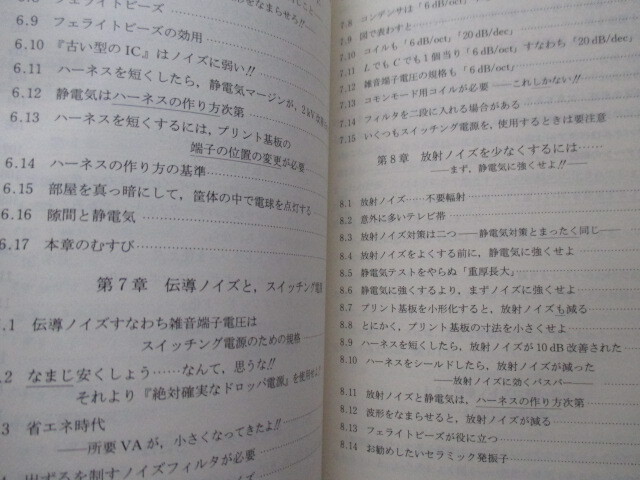 をなまらせろ!!
6.8 フェライトビーズ
6.9 フェライトビーズの効用
6.10 『古い型のIC』はノイズに弱い!!
6.11 ハーネスを短くしたら,静電気マージンが,2kV
6.12 静電気はハーネスの作り方次第
6.13 ハーネスを短くするには,プリント基板の
端子の位置の変更が必要
6.14 ハーネスの作り方の基準
6.15 部屋を真っ暗にして,筐体の中で電球を点灯する
6.16 隙間と静電気
6.17 本章のむすび
第7章 伝導ノイズと,スイッチング電源
.1 伝導ノイズすなわち雑音端子電圧は
スイッチング電源のための規格
.2 なまじ安くしよう……なんて,思うな!!
それより『絶対確実なドロッパ電源』を使用せよ
3 省エネ時代
——所要VAが,小さくなってきたよ!!
出ずるを制すノイズフィルタが必要
7.8 コンデンサは「6dB/oct」「20dB/dec」
7.9 図で表わすと
7.10 コイルも「6dB/oct」「20dB/dec」
7.11 LでもCでも1個当り「6dB/oct」すなわち「20dB/dec」
7.12 雑音端子電圧の規格も「6dB/oct」
7.13 コモンモード用コイルが必要——これしかない!!
7.14 フィルタを二段に入れる場合がある
7.15 いくつもスイッチング電源を,使用するときは要注意
第8章 放射ノイズを少なくするには……
——まず,静電気に強くせよ!!——
8.1 放射ノイズ……不要輻射
8.2 意外に多いテレビ帯
8.3 放射ノイズ対策は二つ——静電気対策とまったく同じ——
8.4 放射ノイズをよくする前に,静電気に強くせよ
8.5 静電気テストをやらぬ「重厚長大」
8.6 静電気に強くするより,まずノイズに強くせよ
8.7 プリント基板を小形化すると,放射ノイズも減る
8.8 とにかく,プリント基板の寸法を小さくせよ
8.9 ハーネスを短くしたら,放射ノイズが10dB改善された
8.10 ハーネスをシールドしたら,放射ノイズが減った
——放射ノイズに効くバスバー——
8.11 放射ノイズと静電気は,ハーネスの作り方次第
8.12 波形をなまらせると,放射ノイズが減る
8.13 フェライトビーズが役に立つ
8.14 お勧めしたいセラミック発振子